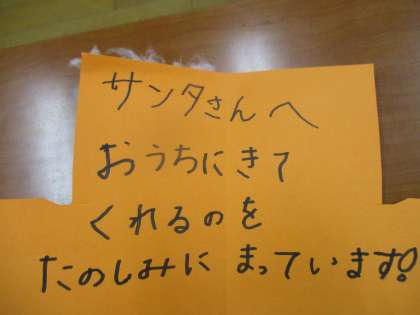 サンタさんへ
おうちにきて
くれるのを
たのしみに まっています!